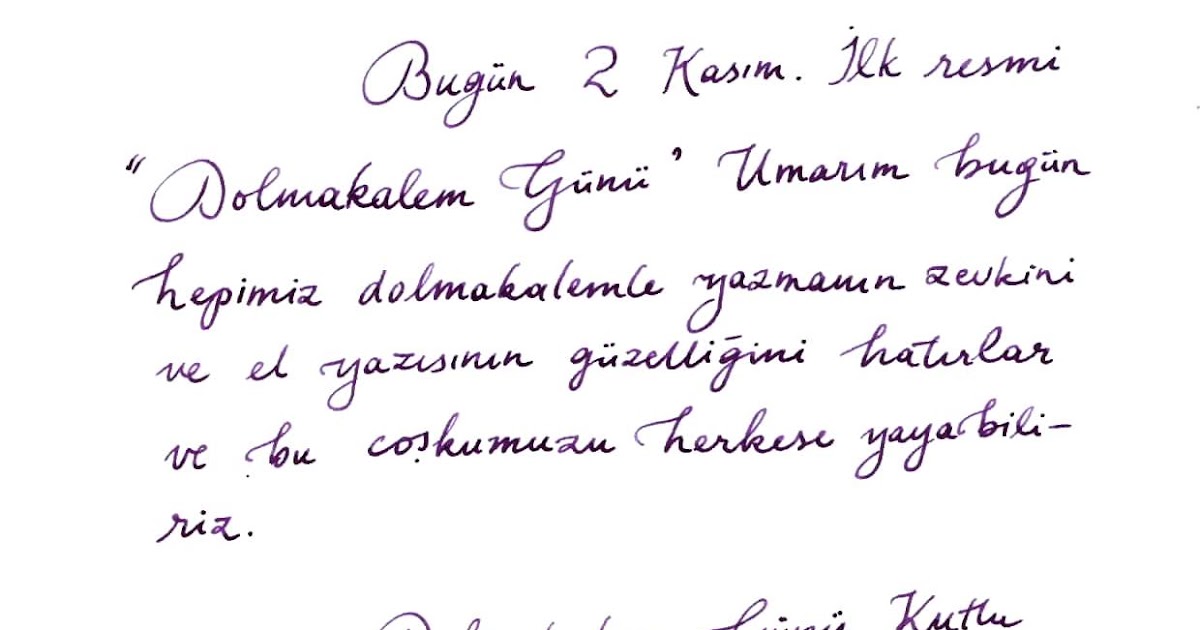 Bugün 2 Kasım. İlk resmi
"Dolmakalem Günü" Umarım bugün
hepimiz dolmakalemle yazmanın zevkini
ve el yazısının güzelliğini hatırlar
ve bu coşkumuzu herkese yayabili-
riz.
Günü Kutlu